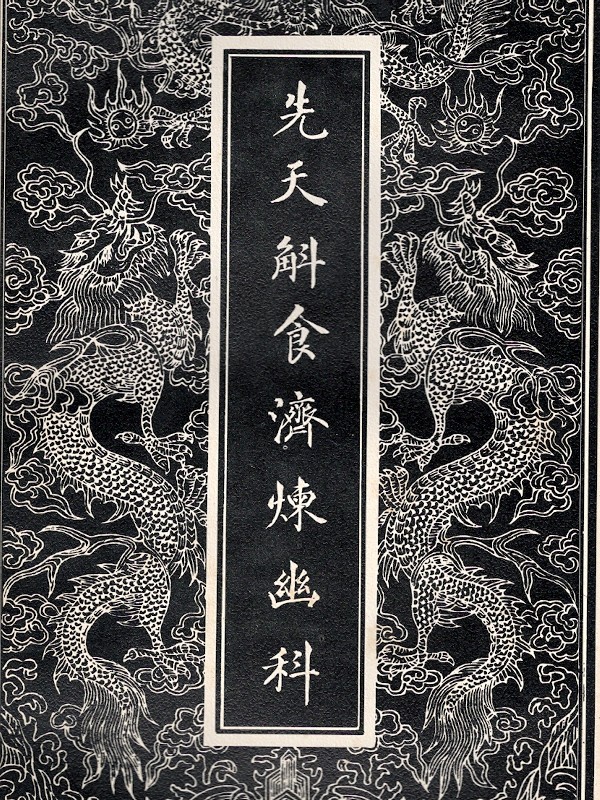 先天斛食濟煉幽科